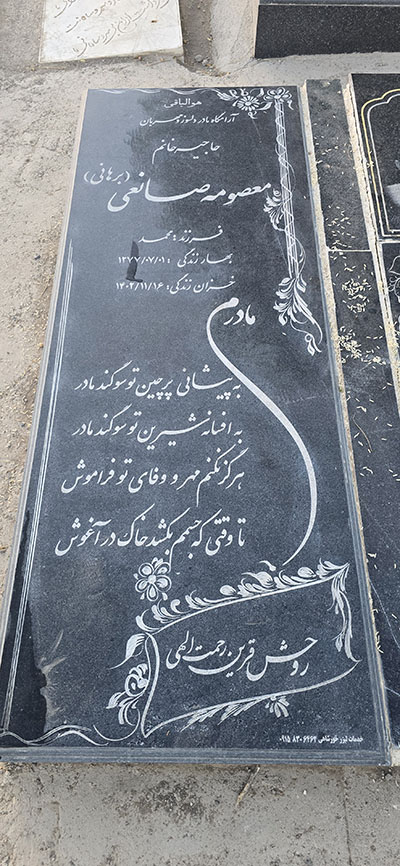 هوالباقی
آرامگاه مادر دلسوز و مهربان
حاجیه خانم
معصومه صانعی (برهانی)
فرزند: محمد
بهار زندگی: ۱۳۷۷/۰۷/۰۱
خزان زندگی: ۱۴۰۲/۱۱/۱۶
مادرم
به پیشانی پرچین تو سوگند مادر
به افسانه شیرین تو سوگند مادر
هرگز نکنم مهر و وفای تو فراموش
تا وقتی که جسمم بکشد خاک در آغوش
روحش قرین رحمت الهی
خدمات لیزر خورشاهی ۰۹۱۵ ۸۳۰ ۶۴۶۴